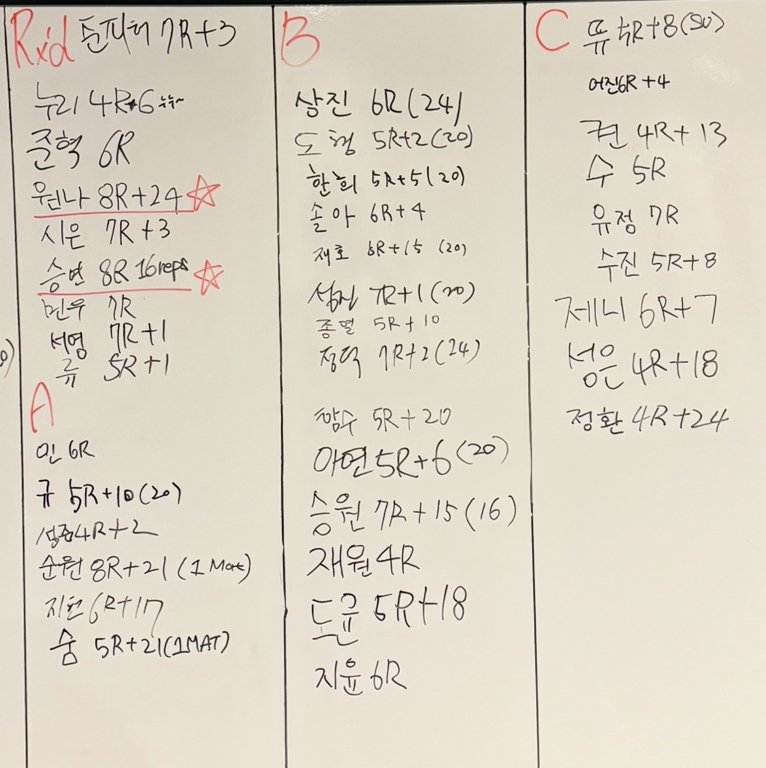 Rx'd 준피허 7R+3
누리 4R+6 누누~
준혁 6R
원나 8R+24 ☆
시은 7R+3
승연 8R 16reps ☆
민우 7R
서영 7R+1
류 5R+1
A
민 6R
규 5R+10 (20)
4R+2
순원 8R+21 (1 Mat)
지현 6R+17
숨 5R+21 (1MAT)
B
상진 6R (24)
도형 5R+2 (20)
한희 5R+5 (20)
솔아 6R+4
재호 6R+15 (20)
섬진 7R+1 (20)
종열 5R+10
정덕 7R+2 (24)
함수 5R+20
아연 5R+6 (20)
승원 7R+15 (16)
재원 4R
도균 5R+18
지윤 6R
C
쮸 5R+8 (50)
어진 6R+4
켠 4R+13
수 5R
유정 7R
수진 5R+8
제니 6R+7
성은 4R+18
정환 4R+24